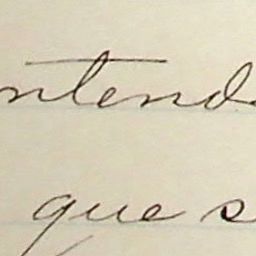 ntend
que s